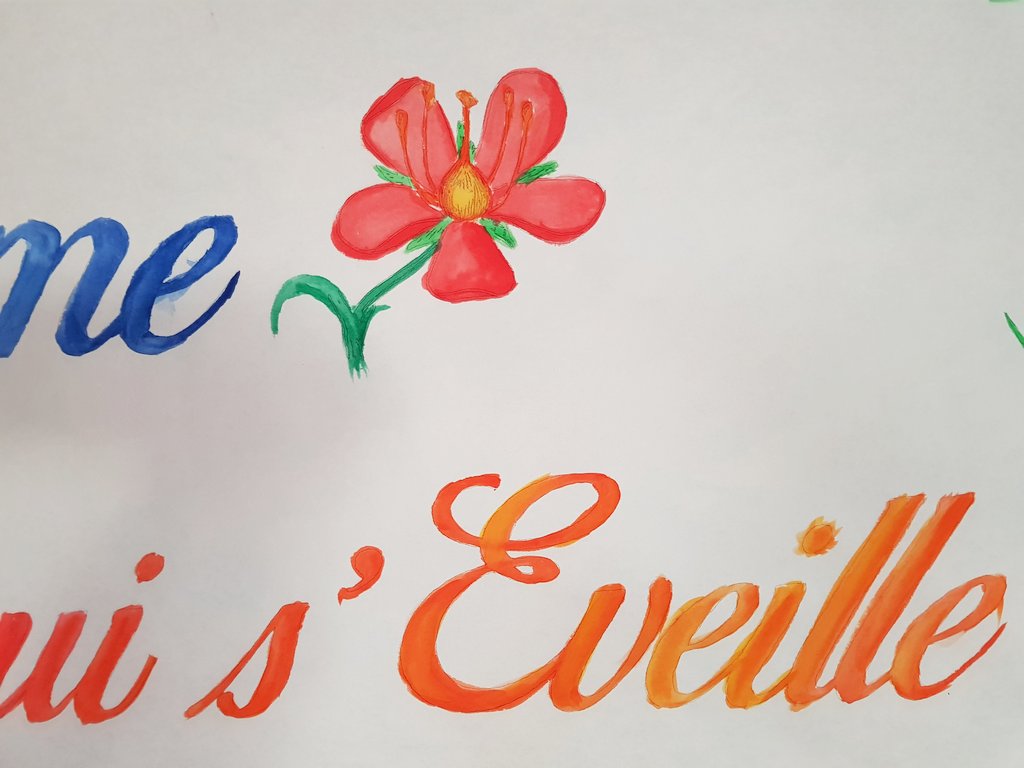 me
ui s'Eveille